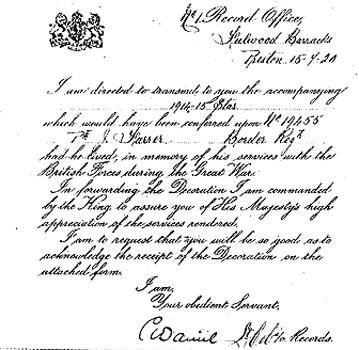 No 1. Record Office,
Fulwood Barracks
Preston 15-7-20
I am directed to transmit to you the accompanying
1914-15 Star
which would have been conferred upon No 19455
Pte J. Farrer Border Regt
had he lived, in memory of his services with the
British Forces during the Great War.
In forwarding the Decoration I am commanded
by the King to assure you of His Majesty's high
appreciation of the services rendered.
I am to request that you will be so good as to
acknowledge the receipt of the Decoration on the
attached form.
I am,
Your obedient Servant,
Records.